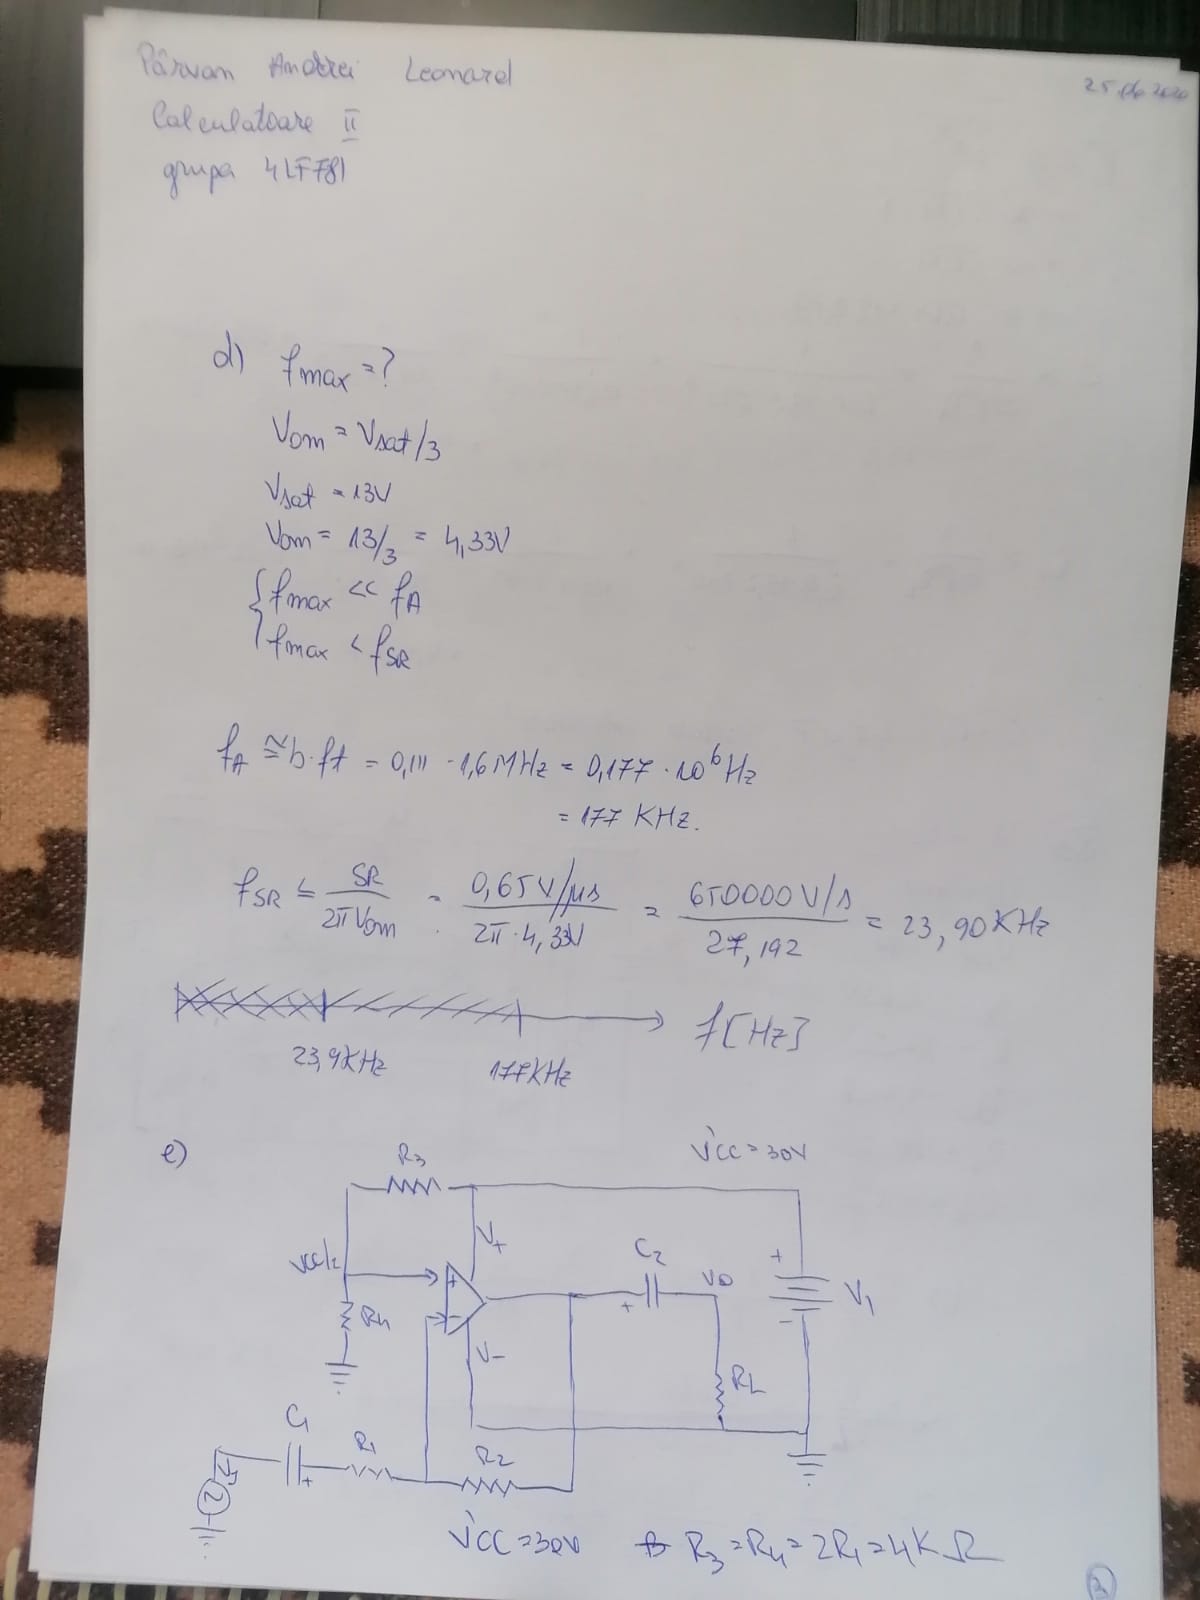 Pârvan Andrei Leonard
25.06.2020
Calculatoare II
grupa 4LF781
d) fmax = ?
Vom = Vsat/3
Vsat = 13V
Vom = 13/3 = 4,33V
fmax << fA
fmax < fSR
fA ≅ b·ft = 0,111 · 1,6MHz = 0,177 · 10⁶ Hz
= 177 KHz.
fSR ≤ SR / 2π Vom = 0,65V/μs / 2π · 4,33V = 650000V/s / 27,192 = 23,90 KHz
23,9KHz 177KHz f[Hz]
e)
R3
V'CC = 30V
V+
VCC/2
C2
+
VO
+
V1
-
R4
V-
RL
C1
+
R1
R2
V'CC = 30V R3 = R4 = 2R1 = 4KΩ
3